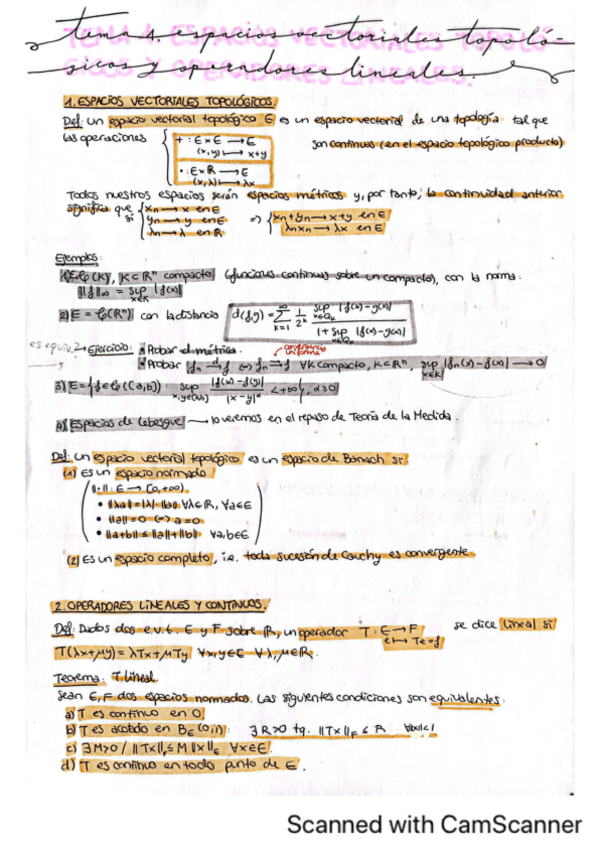 tema 1. espacios vectoriales topoló-
gicos y operadores lineales.
1. ESPACIOS VECTORIALES TOPOLÓGICOS.
Def: Un espacio vectorial topológico E es un espacio vectorial de una topología tal que
las operaciones
+ : E×E → E
(x,y) ↦ x+y
· : E×R → E
(x,λ) ↦ λx
son continuas (en el espacio topológico producto)
Todos nuestros espacios serán espacios métricos y, por tanto, la continuidad anterior
significa que si { xn → x en E
yn → y en E
λn → λ en R
⇒ { xn+yn → x+y en E
λnxn → λx en E
Ejemplos:
1) E=C(K), K⊂Rⁿ compacto (funciones continuas sobre un compacto), con la norma:
‖f‖∞ = sup x∈K |f(x)|
2) E = C(Rⁿ) con la distancia d(f,g) = ∑ k=1 ∞ 1/2ᵏ sup x∈Qk |f(x)-g(x)| / 1+ sup x∈Qk |f(x)-g(x)|
es equiv. → Ejercicio: Probar d métrica.
convergencia uniforme
Probar fn →d f ⇔ fn ⇉ f ∀K compacto, K⊂Rⁿ, sup x∈K |fn(x)-f(x)| → 0
3) E={f∈C((a,b)) sup x,y∈(a,b) |f(x)-f(y)| / |x-y|^α < +∞}, α>0
4) Espacios de Lebesgue → lo veremos en el repaso de Teoría de la Medida.
Def: Un espacio vectorial topológico es un espacio de Banach si
(1) Es un espacio normado
‖·‖: E → [0,+∞)
• ‖λa‖=|λ|·‖a‖ ∀λ∈R, ∀a∈E
• ‖a‖=0 ⇔ a=0
• ‖a+b‖ ≤ ‖a‖+‖b‖ ∀a,b∈E
(2) Es un espacio completo, i.e. toda sucesión de Cauchy es convergente
2. OPERADORES LINEALES Y CONTINUOS.
Def: Dados dos e.v.t. E y F sobre R, un operador T: E → F se dice lineal si
e ↦ Te=f
T(λx+μy) = λTx+μTy ∀x,y∈E ∀λ,μ∈R.
Teorema. T lineal.
Sean E,F dos espacios normados. Las siguientes condiciones son equivalentes:
a) T es continuo en 0
b) T es acotado en BE(0,1): ∃R>0 tq. ‖Tx‖F ≤ R ∀‖x‖<1
c) ∃M>0 / ‖Tx‖F ≤ M ‖x‖E ∀x∈E.
d) T es continuo en todo punto de E.
Scanned with CamScanner